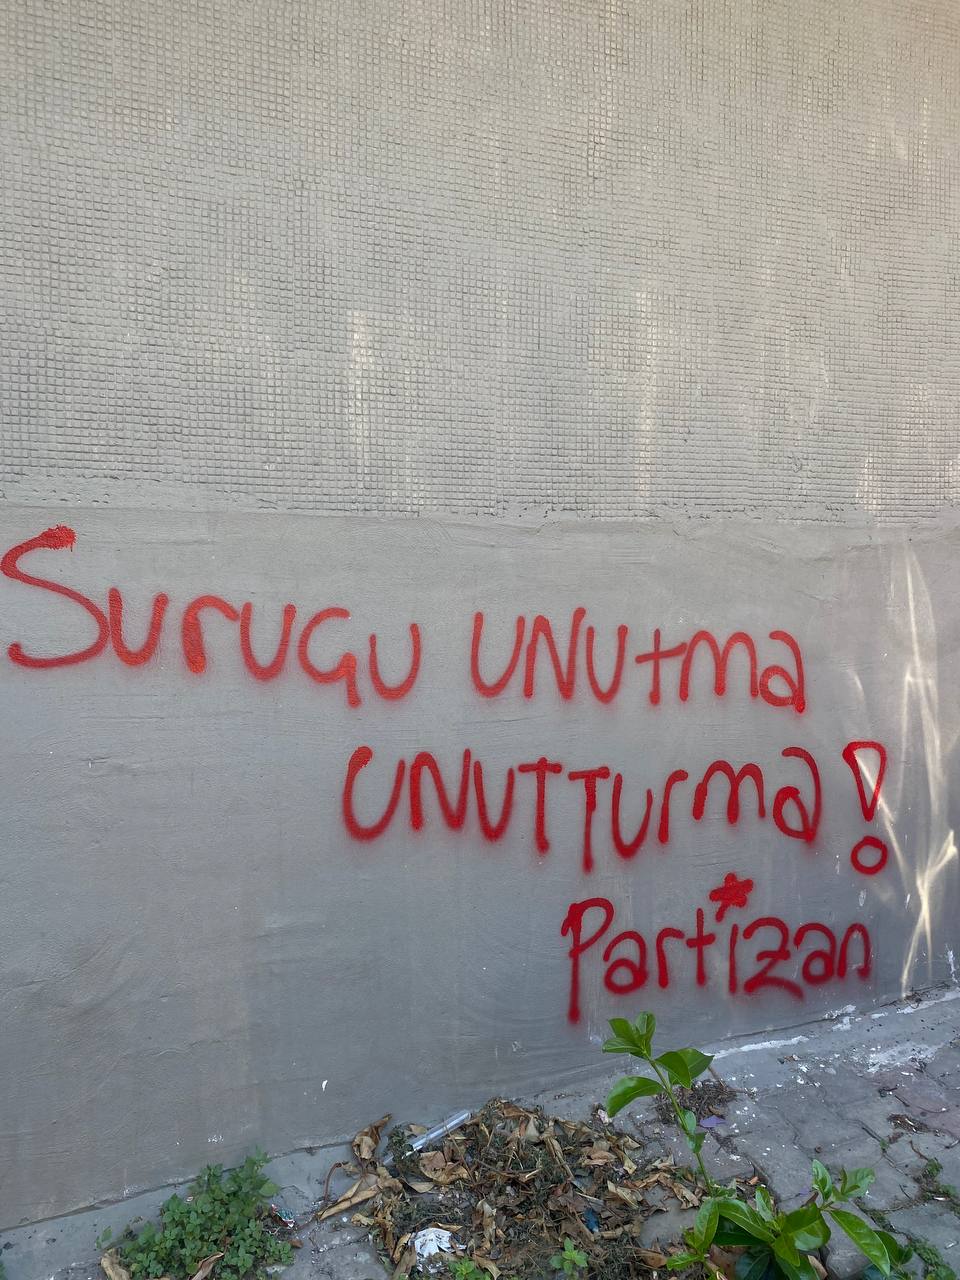 Surugu unutma
unutturma!
Partizan